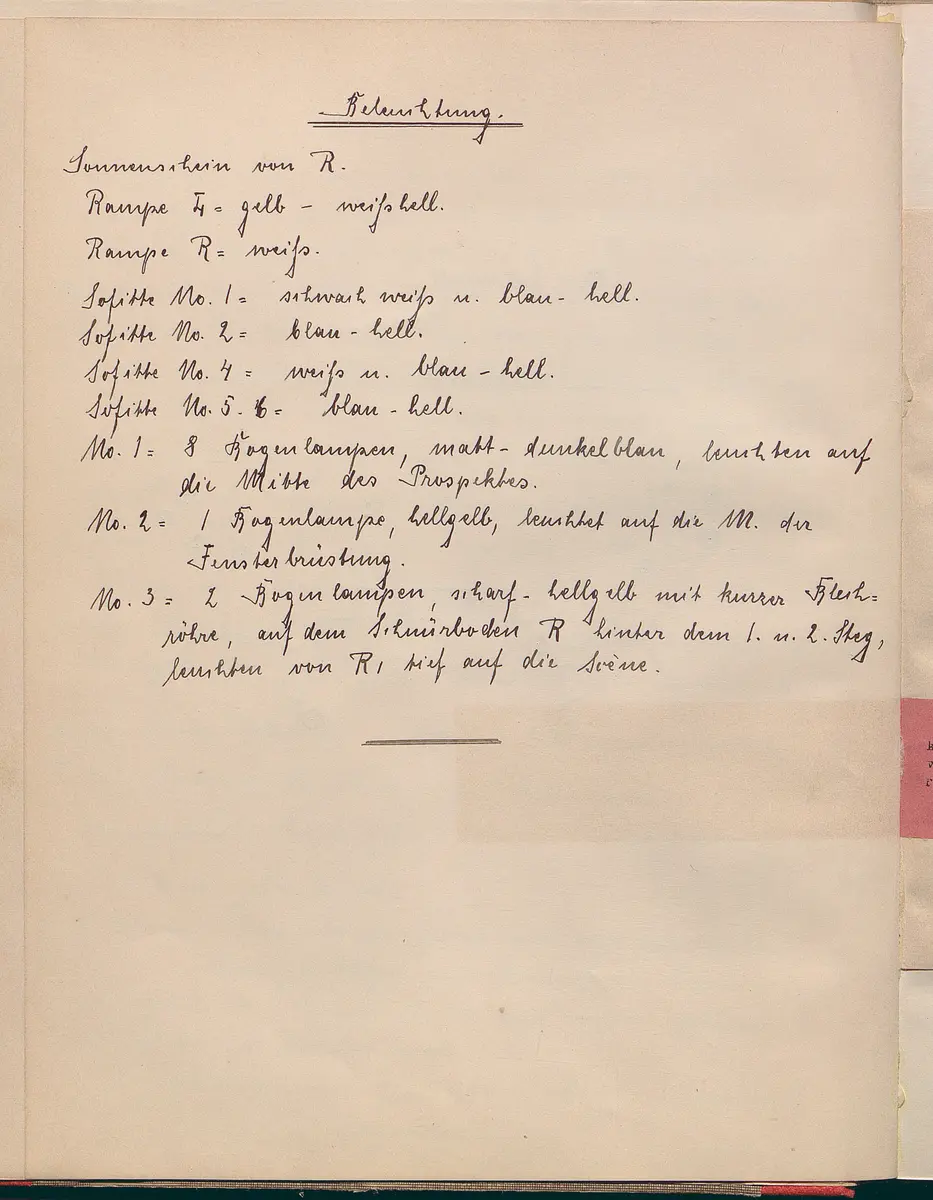 Beleuchtung.
Sonnenschein von R.
Rampe L = gelb - weißhell.
Rampe R = weiß.
Sofitte No. 1 = schwach weiß u. blau - hell.
Sofitte No. 2 = blau - hell.
Sofitte No. 4 = weiß u. blau - hell.
Sofitte No. 5. 6 = blau - hell.
No. 1 = 8 Bogenlampen, matt - dunkelblau, leuchten auf
die Mitte des Prospektes.
No. 2 = 1 Bogenlampe, hellgelb, leuchtet auf die M. der
Fensterbrüstung.
No. 3 = 2 Bogenlampen, scharf - hellgelb mit kurzer Blech=
röhre, auf dem Schnürboden R hinter dem 1. u. 2. Steg,
leuchten von R, tief auf die Scène.